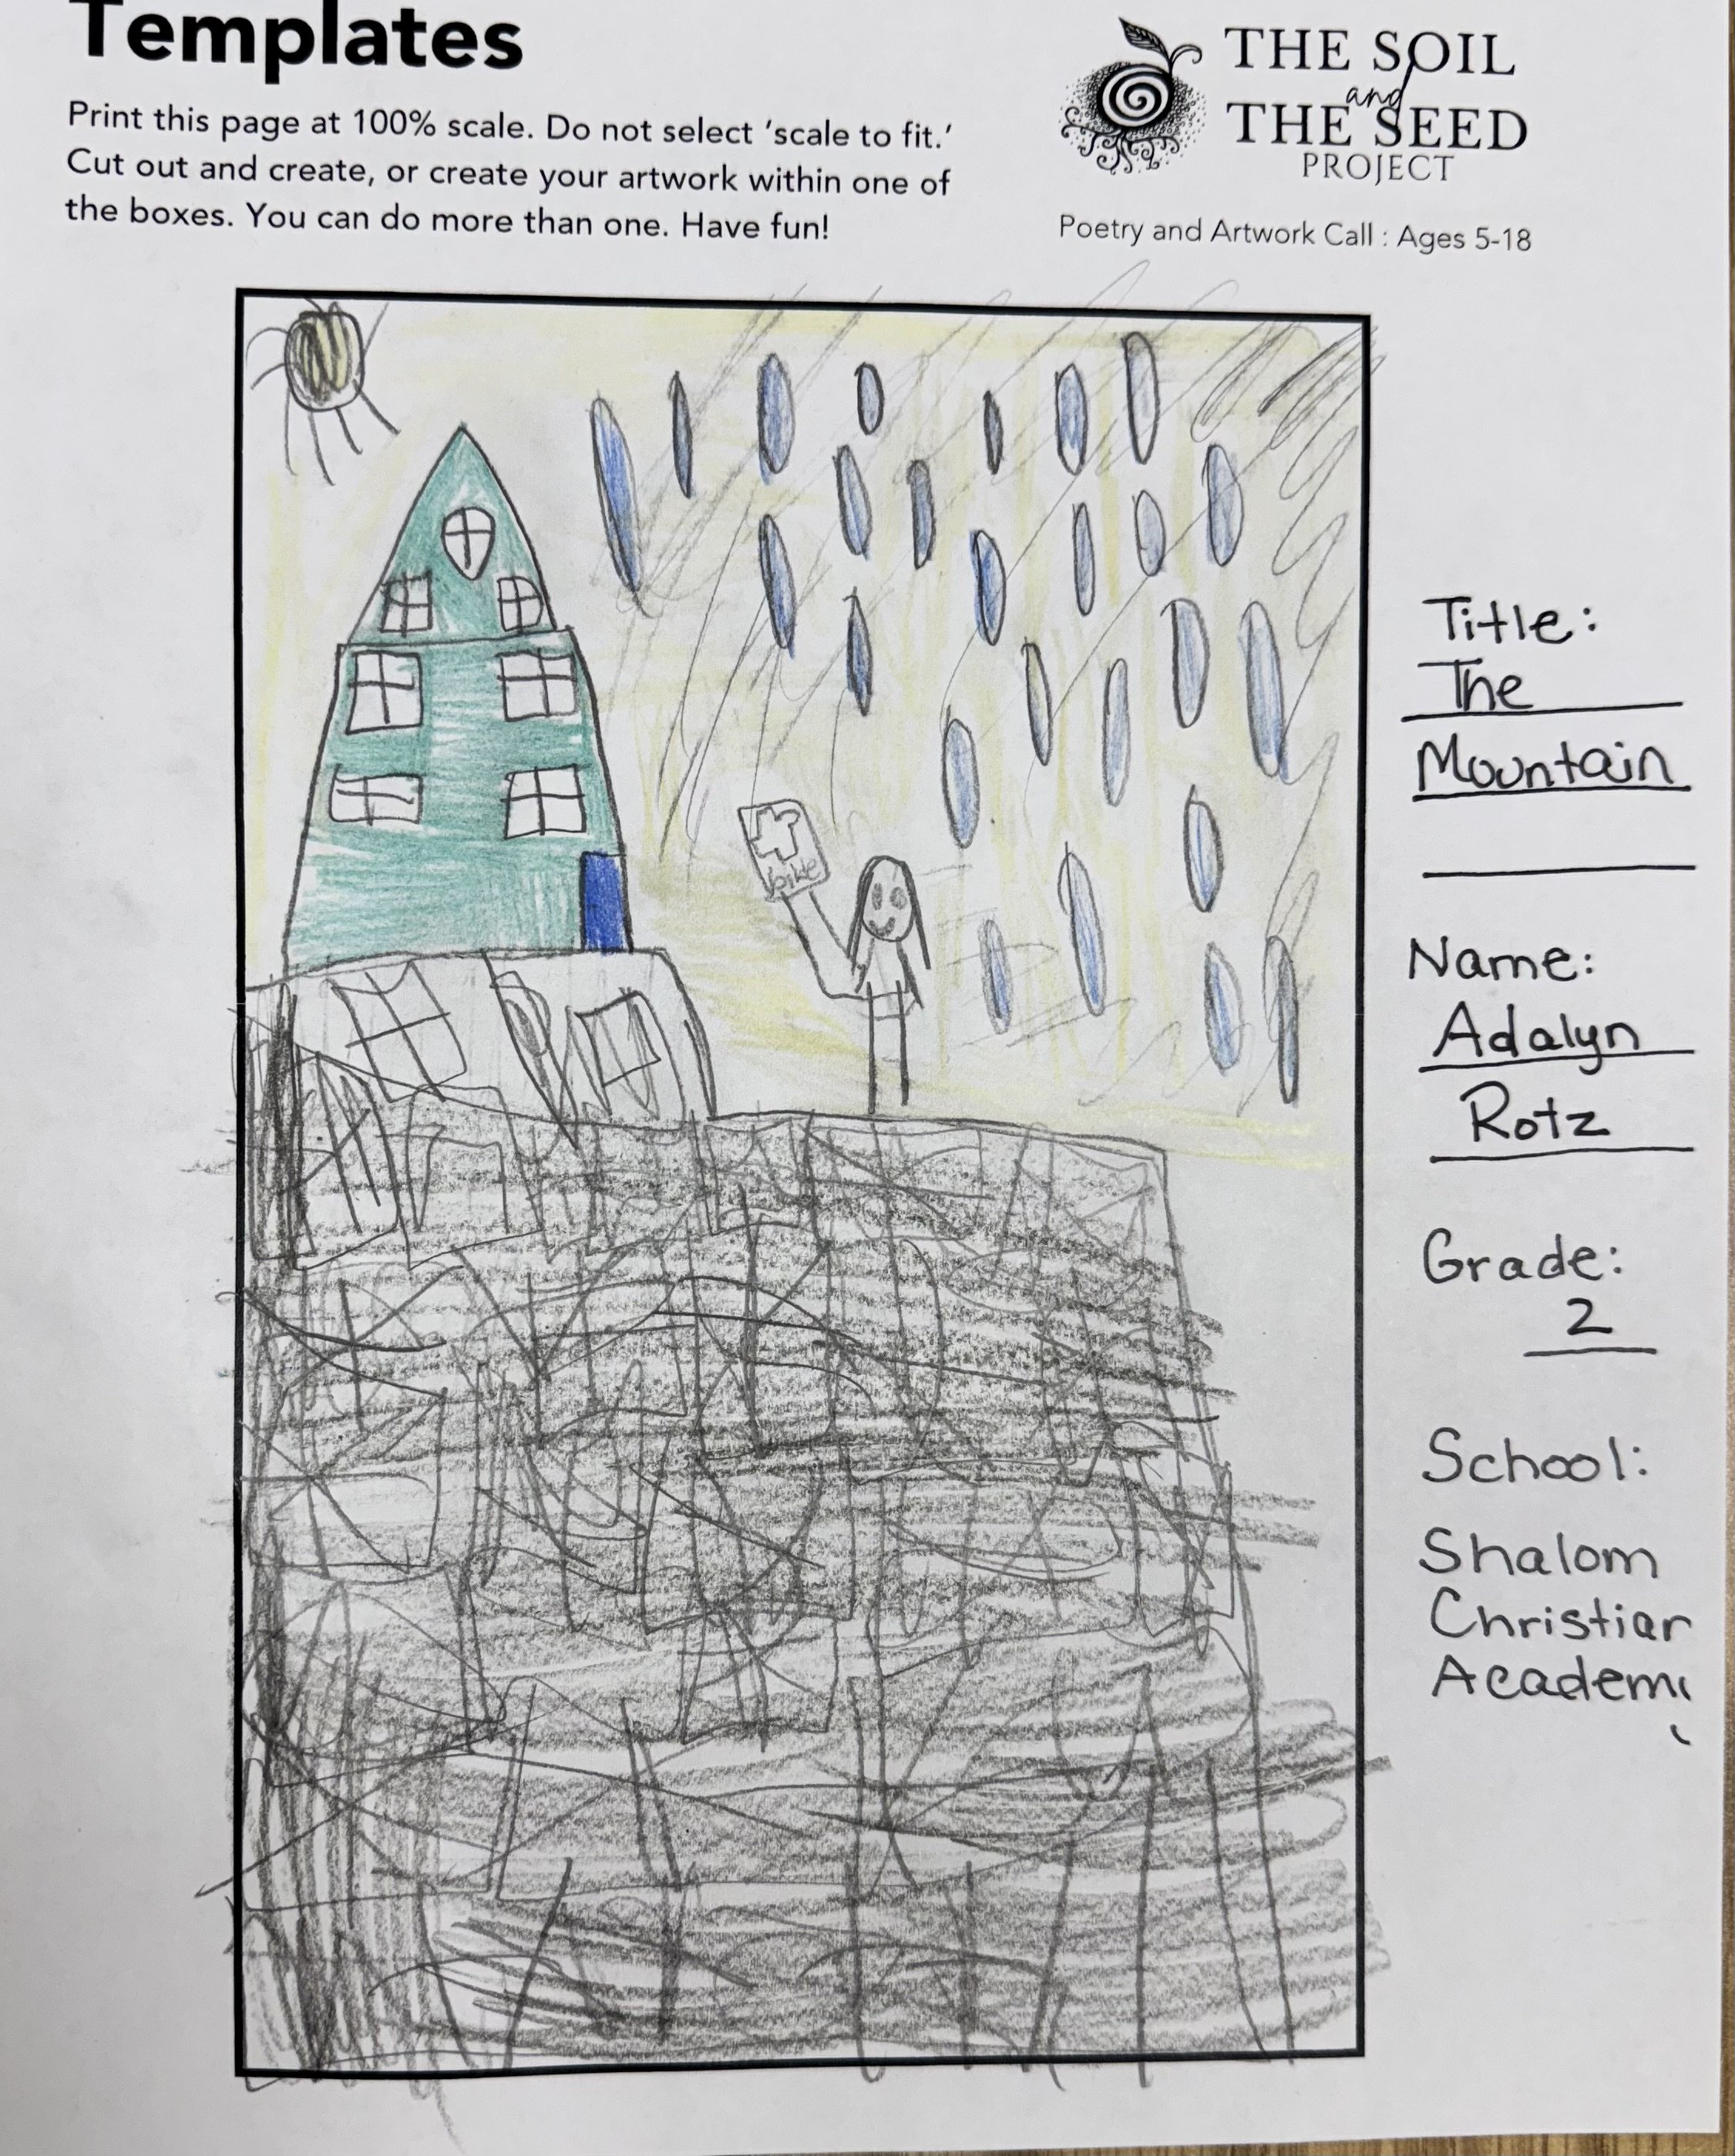 Templates
Print this page at 100% scale. Do not select ‘scale to fit.’
Cut out and create, or create your artwork within one of
the boxes. You can do more than one. Have fun!
THE SOIL
and
THE SEED
PROJECT
Poetry and Artwork Call : Ages 5-18
bike
Title:
The
Mountain
Name:
Adalyn
Rotz
Grade:
2
School:
Shalom
Christian
Academy